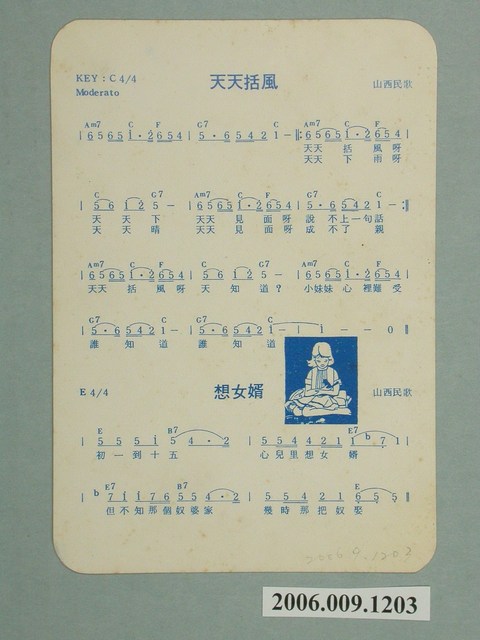 KEY : C 4/4
天天括風
山西民歌
Moderato
Am7 C F G7 C Am7 C F
| 6 5 6 5 | 1 · 2 6 5 4 | 5 · 6 5 4 2 1 — |: 6 5 6 5 1 · 2 6 5 4 |
天天 括 風呀
天天 下 雨呀
C G7 Am7 C F G7 C
| 5 6 1 2 5 — | 6 5 6 5 1 · 2 6 5 4 | 5 · 6 5 4 2 1 — :||
天 天 下 天天 見 面呀 說 不上一句話
天 天 晴 天天 見 面呀 成 不了 親
Am7 C F C G7 Am7 C F
| 6 5 6 5 1 · 2 6 5 4 | 5 6 1 2 5 — | 6 5 6 5 1 · 2 6 5 4 |
天天 括 風呀 天 知 道? 小妹妹 心 裡難受
G7 C G7 C
| 5 · 6 5 4 2 1 — | 5 · 6 5 4 2 1 — | 1 — — 0 ||
誰 知 道 誰 知 道
E 4/4
想女婿
山西民歌
E B7 E7
| 5 5 5 i 5 4 · 2 | 5 5 4 2 1 1 b7 1 |
初一到十五 心兒里想女 婿
E7 B7 E
| b7 i i 7 6 5 5 4 · 2 | 5 5 4 2 1 6 5 5 ||
但不知那個奴婆家 幾時那把奴娶
2006.9.1203
2006.009.1203